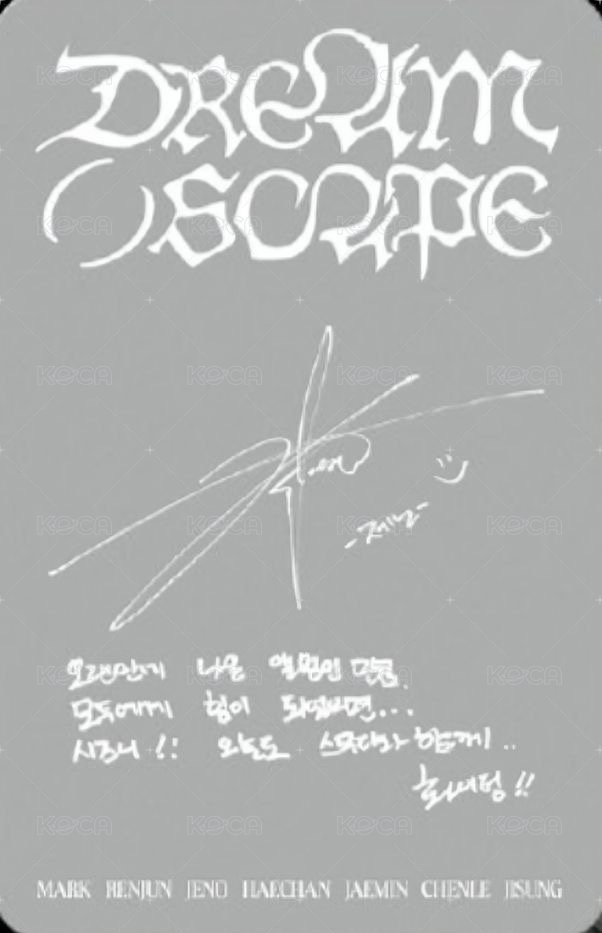 DREAM
( )SCAPE
-제노-
오랜만에 나온 앨범인 만큼
모두에게 힘이 되었으면...
시즈니!! 오늘도 함께..
화이팅!!
MARK RENJUN JENO HAECHAN JAEMIN CHENLE JISUNG